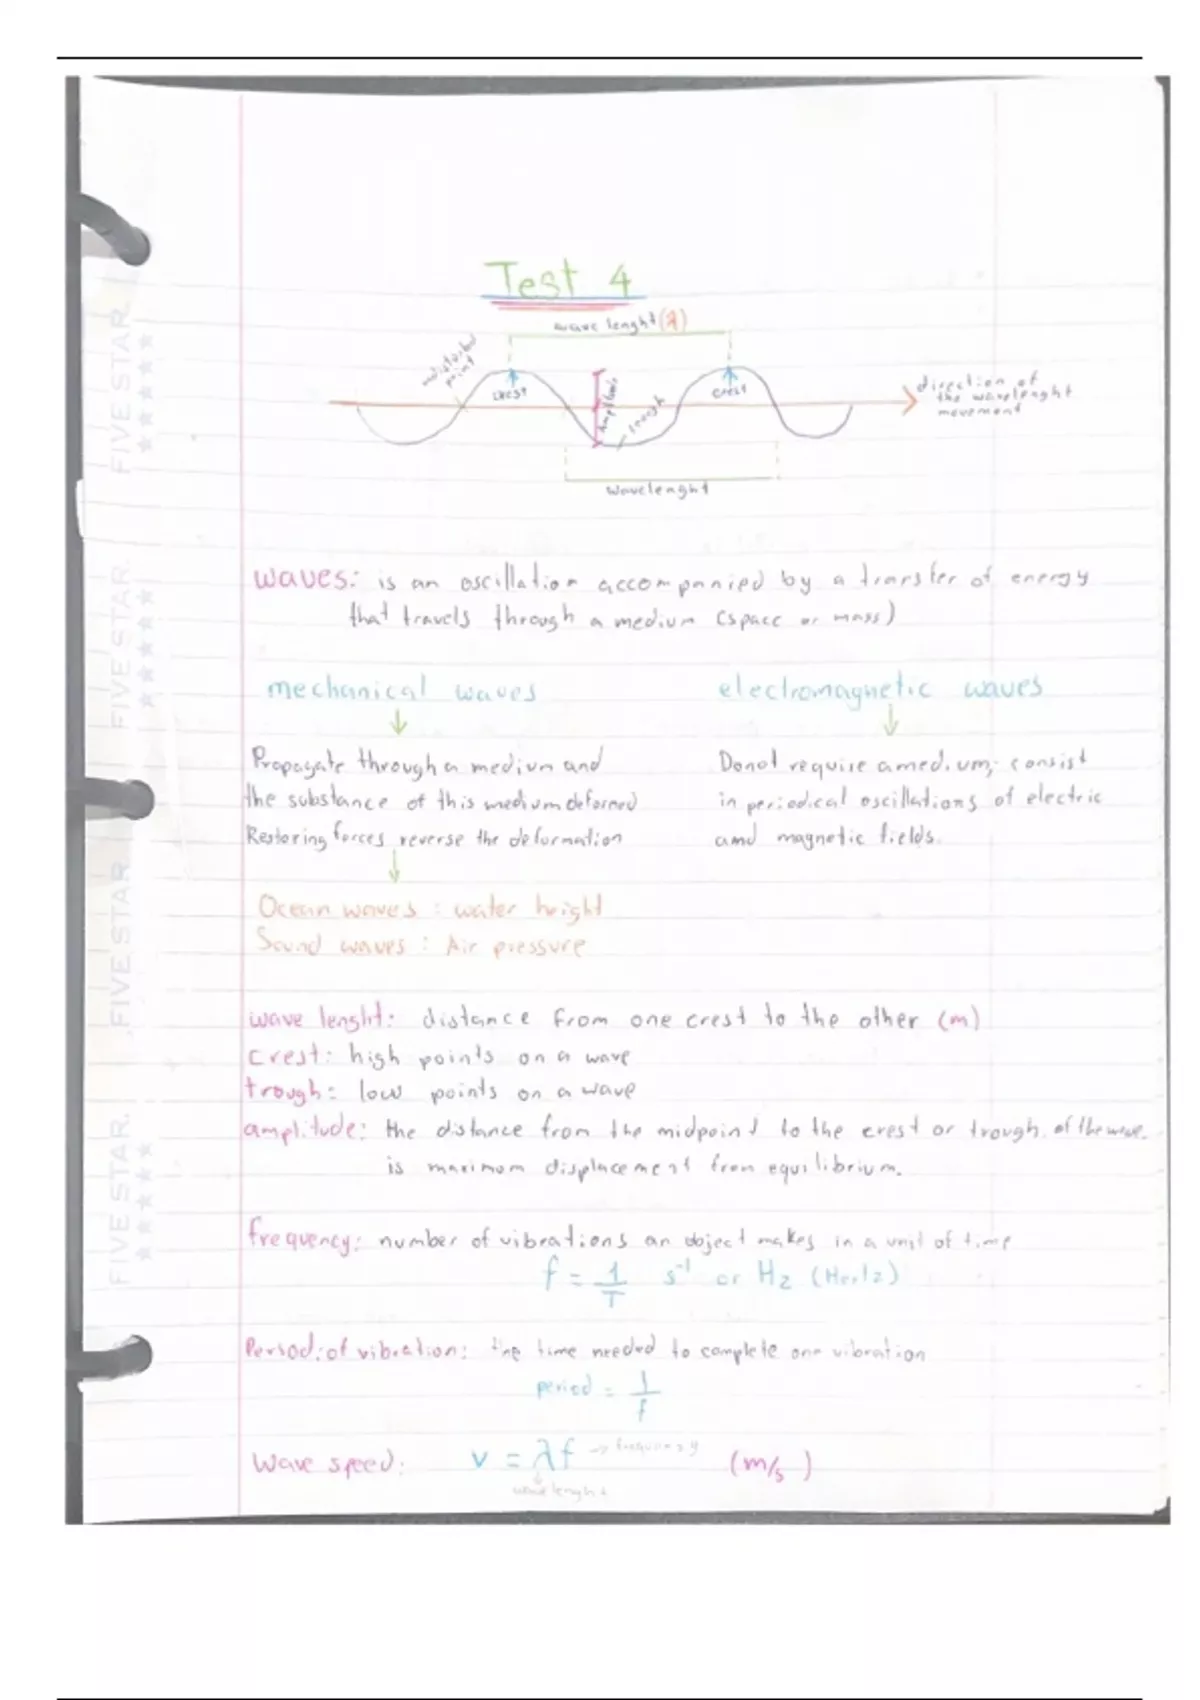 Test 4
wave lenght (λ)
undisturbed
point
crest
crest
Amplitude
trough
direction of
the wavelenght
movement
wavelenght
waves: is an oscillation accompanied by a transfer of energy
that travels through a medium (space or mass)
mechanical waves
electromagnetic waves
Propagate through a medium and
the substance of this medium deformed
Restoring forces reverse the deformation
Do not require a medium; consist
in periodical oscillations of electric
amd magnetic fields.
Ocean waves : water height
Sound waves : Air pressure
wave lenght: distance from one crest to the other (m)
crest: high points on a wave
trough: low points on a wave
amplitude: the distance from the midpoint to the crest or trough of the wave.
is maximom displacement from equilibrium.
frequency: number of vibrations an object makes in a unit of time
f = 1/T s⁻¹ or Hz (Hertz)
Period of vibration: the time needed to complete one vibration
period = 1/f
Wave speed: v = λf → frequency (m/s)
wave lenght
FIVE STAR
FIVE STAR
FIVE STAR
FIVE STAR